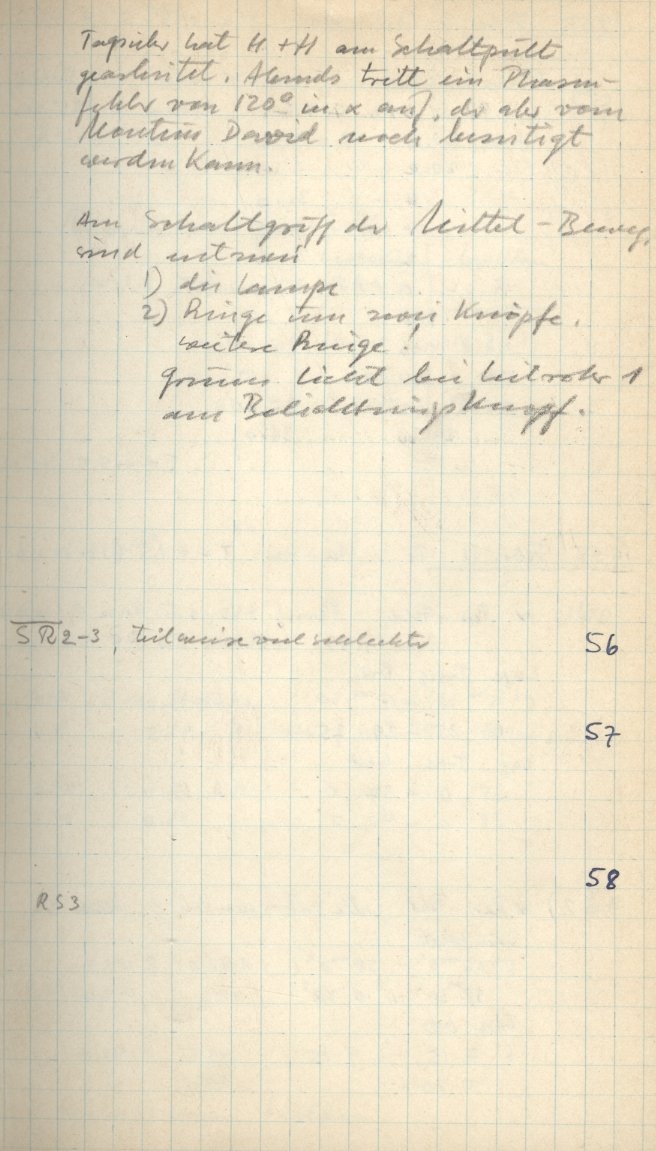 Tagsüber hat H + H am Schaltpult
gearbeitet. Abends tritt ein Phasen-
fehler von 120° in α auf, der aber vom
Monteur David noch beseitigt
werden kann.
Am Schaltgriff der Mittel-Beweg.
sind entzwei
1) die Lampe
2) Ringe um zwei Knöpfe.
weitere Ringe!
grünes Licht bei Leitrohr 1
am Belichtungsknopf.
SR 2-3, teilweise viel schlechter
56
57
58
RS3